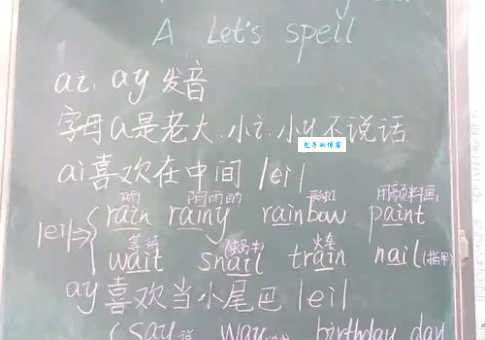 A Let's spell
ai, ay 发音
字母a是老大,小i,小y不说话
包子的博客
ai喜欢在中间 /ei/
雨 阴雨的 彩虹 用颜料画
/ei/⇒ rain rainy rainbow paint
等待 火车
wait snail train nail (指甲)
ay喜欢当小尾巴 /ei/
say 说 way birthday day